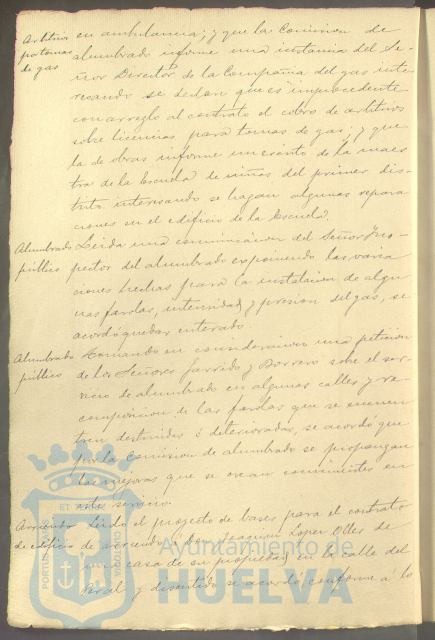 Arbitrios en ambulancia; y que la Comision de
por tomas alumbrado informe una instancia del Se-
de gas ñor Director de la Compañia del gas inte-
resando se declare que es improcedente
con arreglo al contrato el cobro de arbitrios
sobre licencias para tomas de gas; y que
la de obras informe un escrito de la maes-
tra de la Escuela de niñas del primer dis-
trito interesando se hagan algunas repara-
ciones en el edificio de la Escuela.
Alumbrado Leida una comunicacion del Señor Ins-
público pector del alumbrado exponiendo las varia
ciones hechas para la instalacion de algu-
nas farolas, intensidad y presion del gas, se
acordó quedar enterado.
Alumbrado Tomando en consideracion una peticion
público de los Señores Garrido y Borrero sobre el ser-
vicio de alumbrado en algunas calles y re-
composicion de las farolas que se encuen
tren destruidas ó deterioradas, se acordó que
por la Comision de alumbrado se propongan
las mejoras que se crean convenientes en
este servicio.
Arriendo Leido el proyecto de bases para el contrato
de edificio de arriendo á Don Joaquin Lopez de
una casa de su propiedad en la calle del
y discutido se acordó conforme á lo
Ayuntamiento de
HUELVA